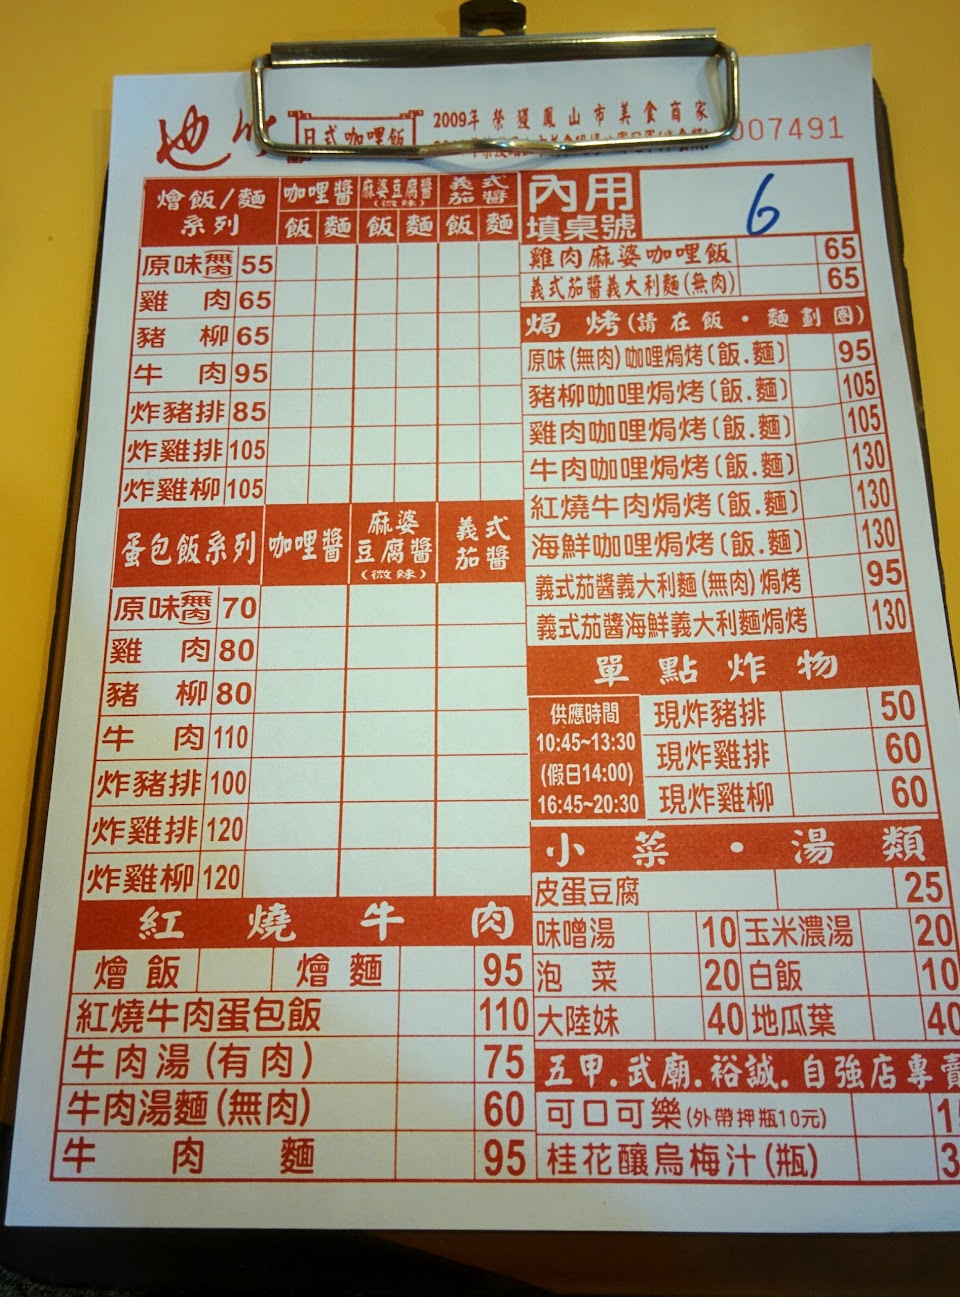 池
日式咖哩飯
2009年 榮獲鳳山市美食商家
007491
燴飯/麵系列 咖哩醬 麻婆豆腐醬(微辣) 義式茄醬
飯 麵 飯 麵 飯 麵
原味無肉 55
雞肉 65
豬柳 65
牛肉 95
炸豬排 85
炸雞排 105
炸雞柳 105
蛋包飯系列 咖哩醬 麻婆豆腐醬(微辣) 義式茄醬
原味無肉 70
雞肉 80
豬柳 80
牛肉 110
炸豬排 100
炸雞排 120
炸雞柳 120
紅燒牛肉
燴飯 燴麵 95
紅燒牛肉蛋包飯 110
牛肉湯(有肉) 75
牛肉湯麵(無肉) 60
牛肉麵 95
內用
填桌號
6
雞肉麻婆咖哩飯 65
義式茄醬義大利麵(無肉) 65
焗烤(請在飯・麵劃圈)
原味(無肉)咖哩焗烤(飯.麵) 95
豬柳咖哩焗烤(飯.麵) 105
雞肉咖哩焗烤(飯.麵) 105
牛肉咖哩焗烤(飯.麵) 130
紅燒牛肉焗烤(飯.麵) 130
海鮮咖哩焗烤(飯.麵) 130
義式茄醬義大利麵(無肉)焗烤 95
義式茄醬海鮮義大利麵焗烤 130
單點炸物
供應時間
10:45~13:30
(假日14:00)
16:45~20:30
現炸豬排 50
現炸雞排 60
現炸雞柳 60
小菜・湯類
皮蛋豆腐 25
味噌湯 10 玉米濃湯 20
泡菜 20 白飯 10
大陸妹 40 地瓜葉 40
五甲.武廟.裕誠.自強店專賣
可口可樂(外帶押瓶10元)
桂花釀烏梅汁(瓶)